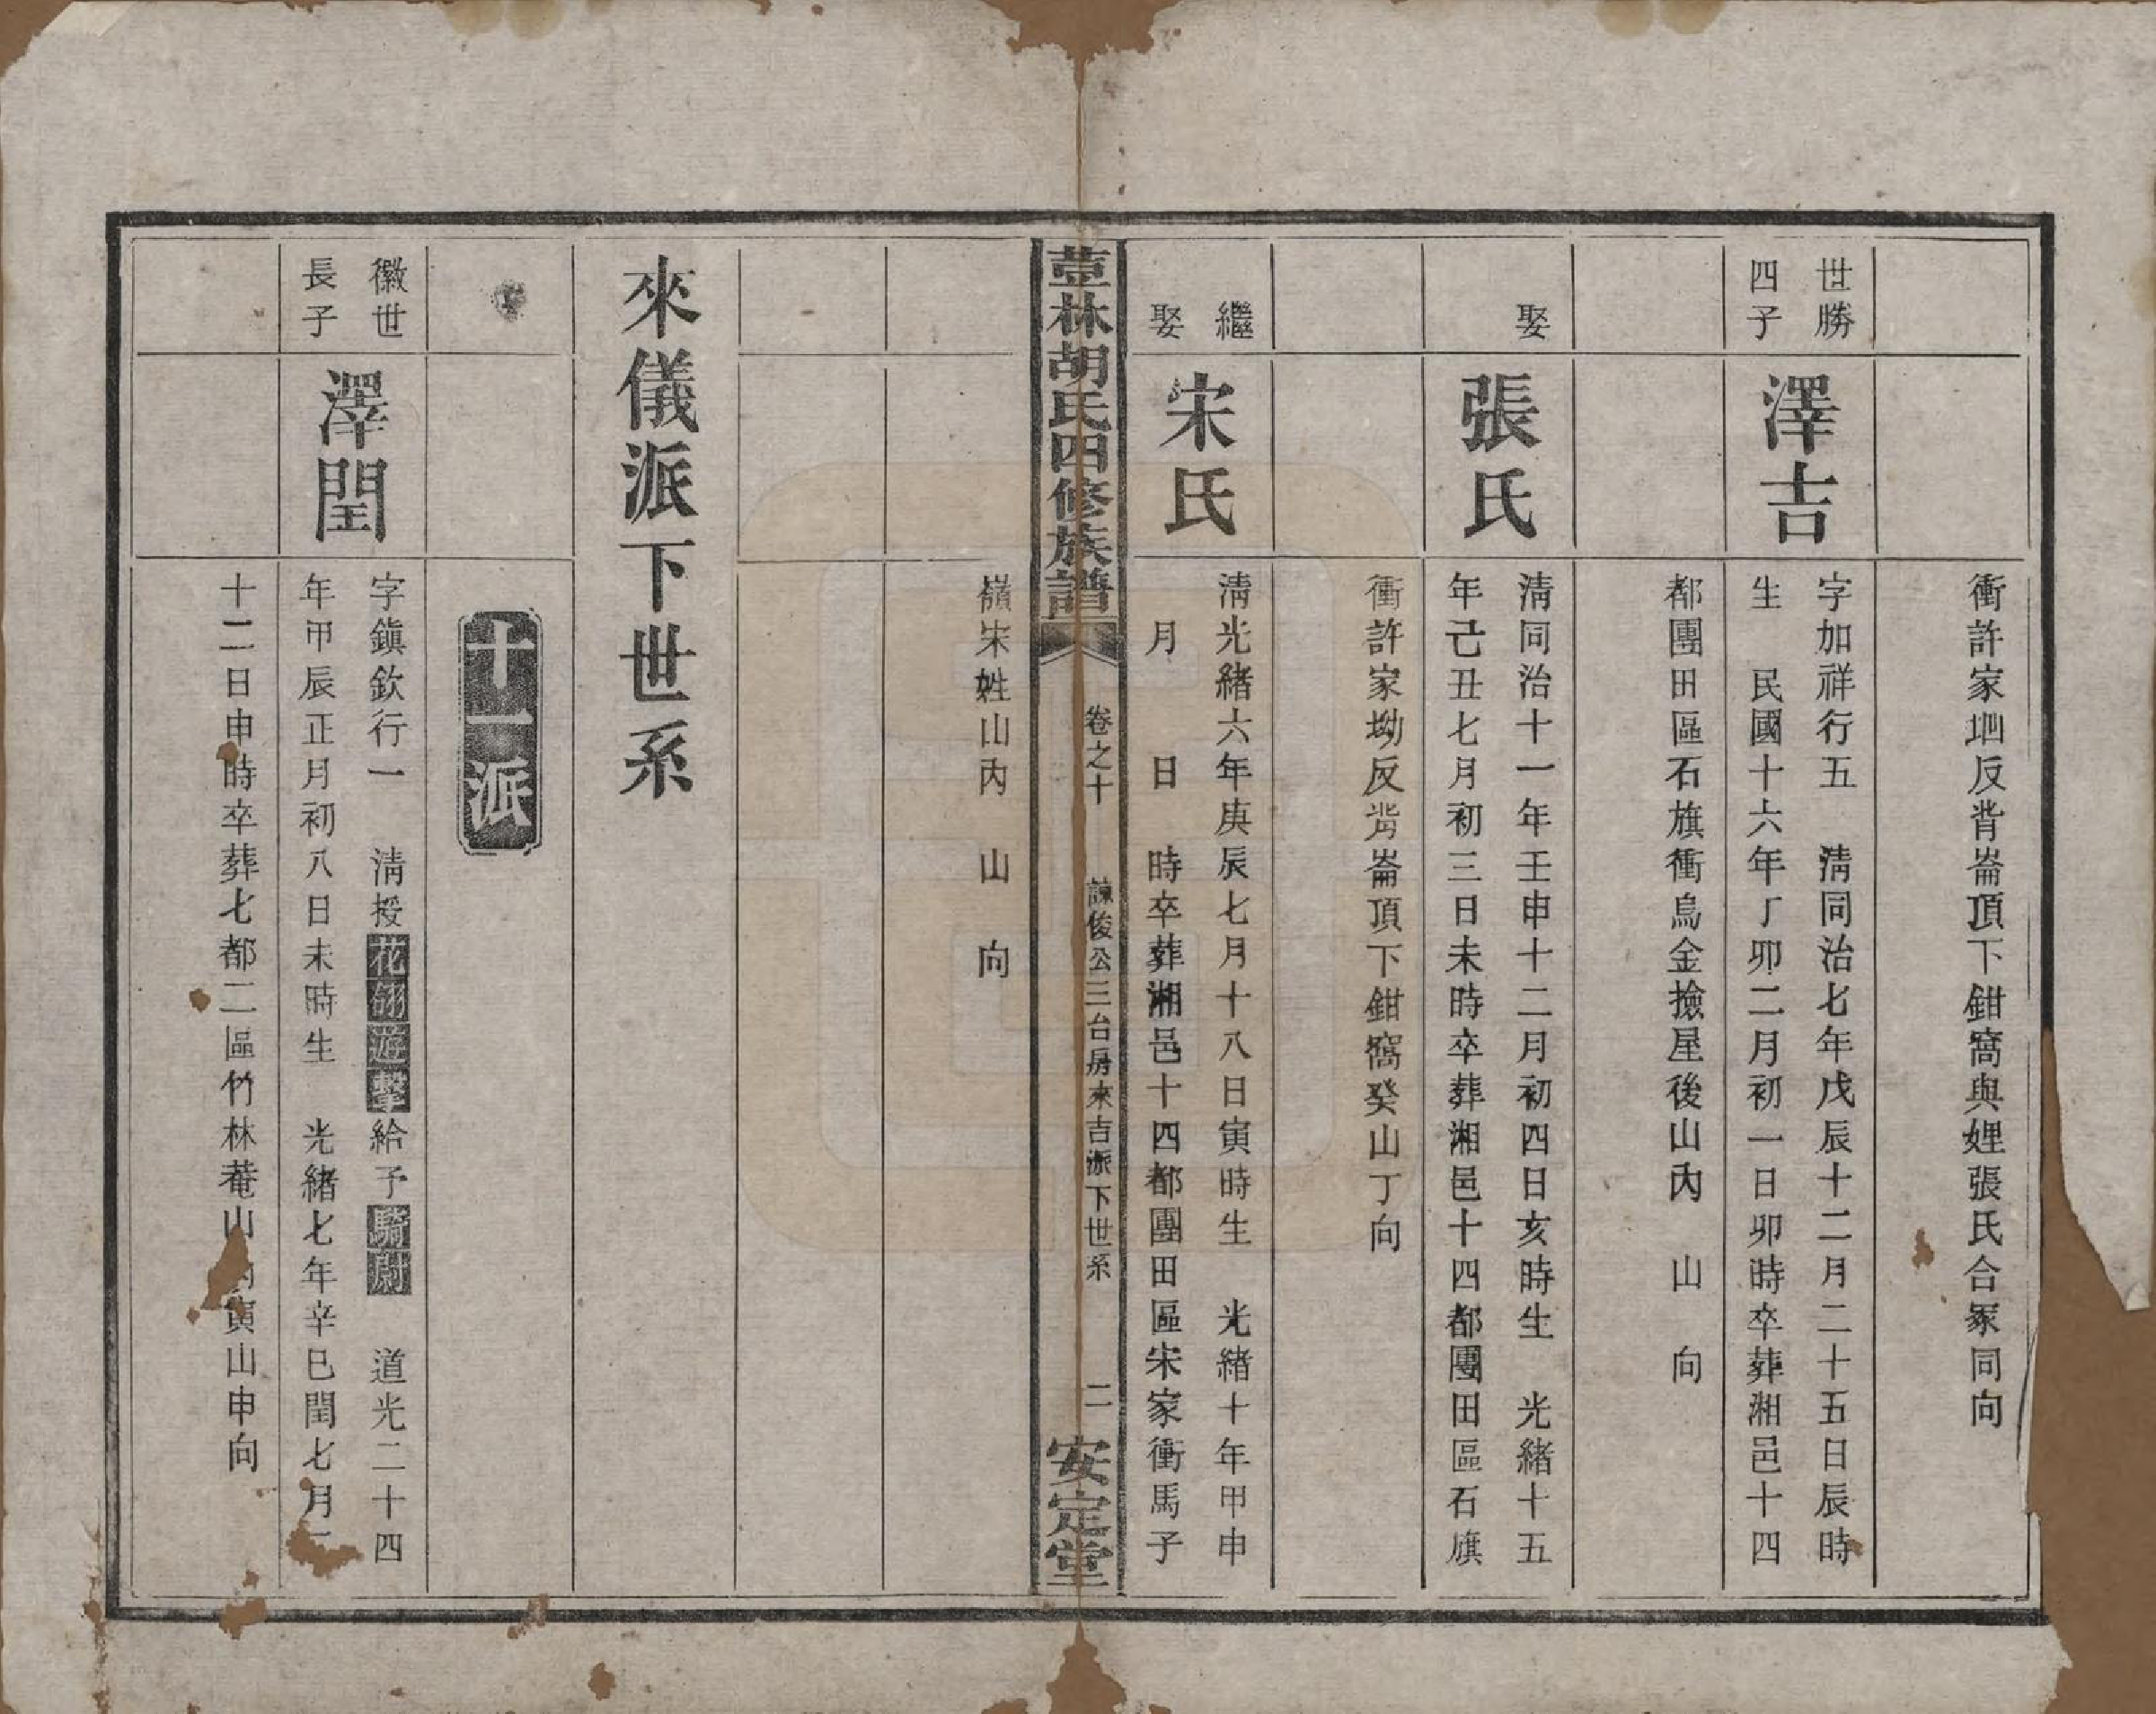 衝許家坳反背崙頂下鉗窩與娌張氏合冢同向
世勝
四子
澤吉
字加祥行五　清同治七年戊辰十二月二十五日辰時
生　民國十六年丁卯二月初一日卯時卒葬湘邑十四
都團田區石旗衝烏金撿屋後山內　山　向
娶
張氏
清同治十一年壬申十二月初四日亥時生　光緒十五
年己丑七月初三日未時卒葬湘邑十四都團田區石旗
衝許家坳反背崙頂下鉗窩癸山丁向
繼
娶
宋氏
清光緒六年庚辰七月十八日寅時生　光緒十年甲申
月　　日　時卒葬湘邑十四都團田區宋家衝馬子
荳林胡氏四修族譜
卷之十
諫俊公三台房來吉派下世系
二
安定堂
嶺宋姓山內　山　向
來儀派下世系
十一派
徽世
長子
澤閏
字鎮欽行一　清授花翎遊擊給予騎尉　道光二十四
年甲辰正月初八日未時生　光緒七年辛巳閏七月二
十二日申時卒葬七都二區竹林菴山內寅山申向